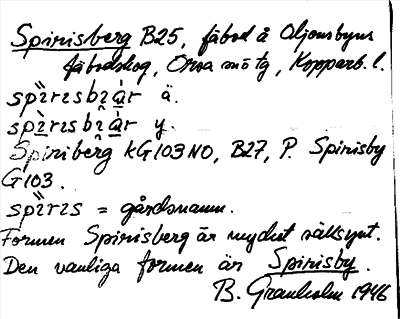 Spirisberg B25, fäbod å Oljonsbyns
fäbodskog, Orsa snötg, Kopparb. l.
spìrɪsbɪàr ä.
spìrɪsbɪàr y.
Spiriberg KG103NO, B27, P. Spirisby
G103.
spìrɪs = gårdsnamn.
Formen Spirisberg är mycket sällsynt.
Den vanliga formen är Spirisby.
B. Granholm 1946